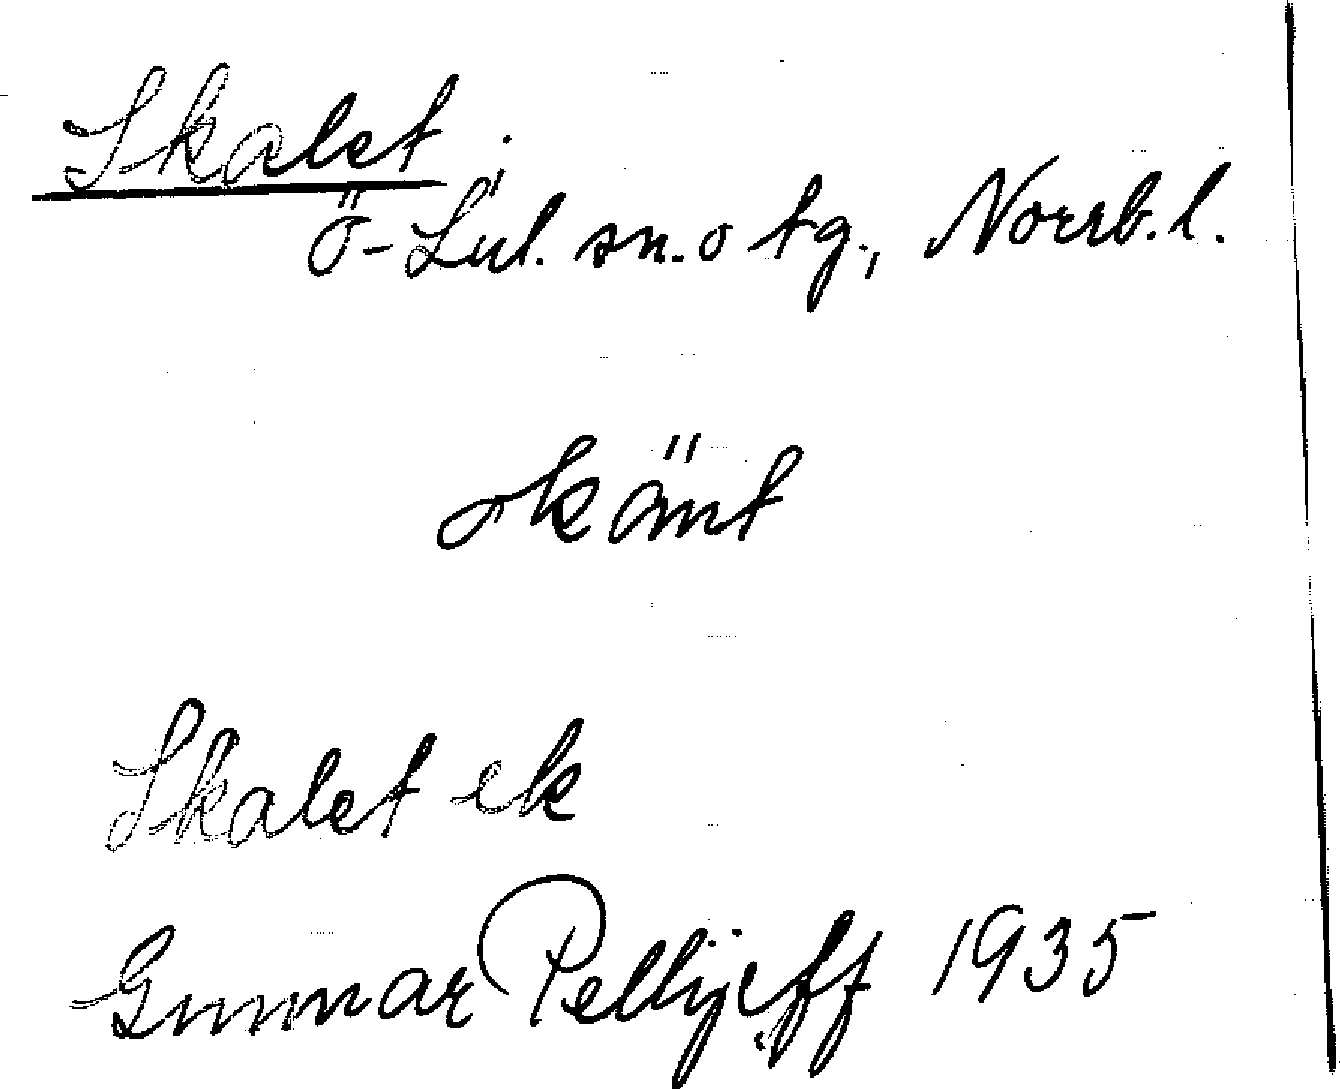 Skalet
Ö-Lul. sn. o tg., Norrb. l.
okänt
Skalet ek
Gunnar Pellijeff 1935